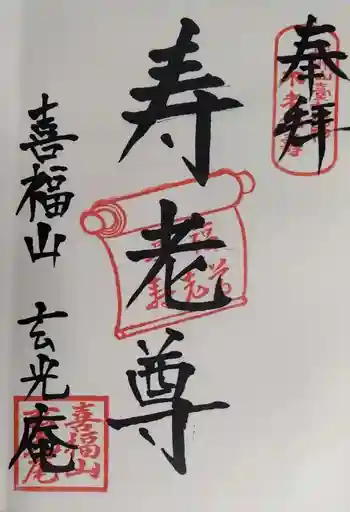 奉拝
寿老尊
喜福山 玄光庵
喜福山